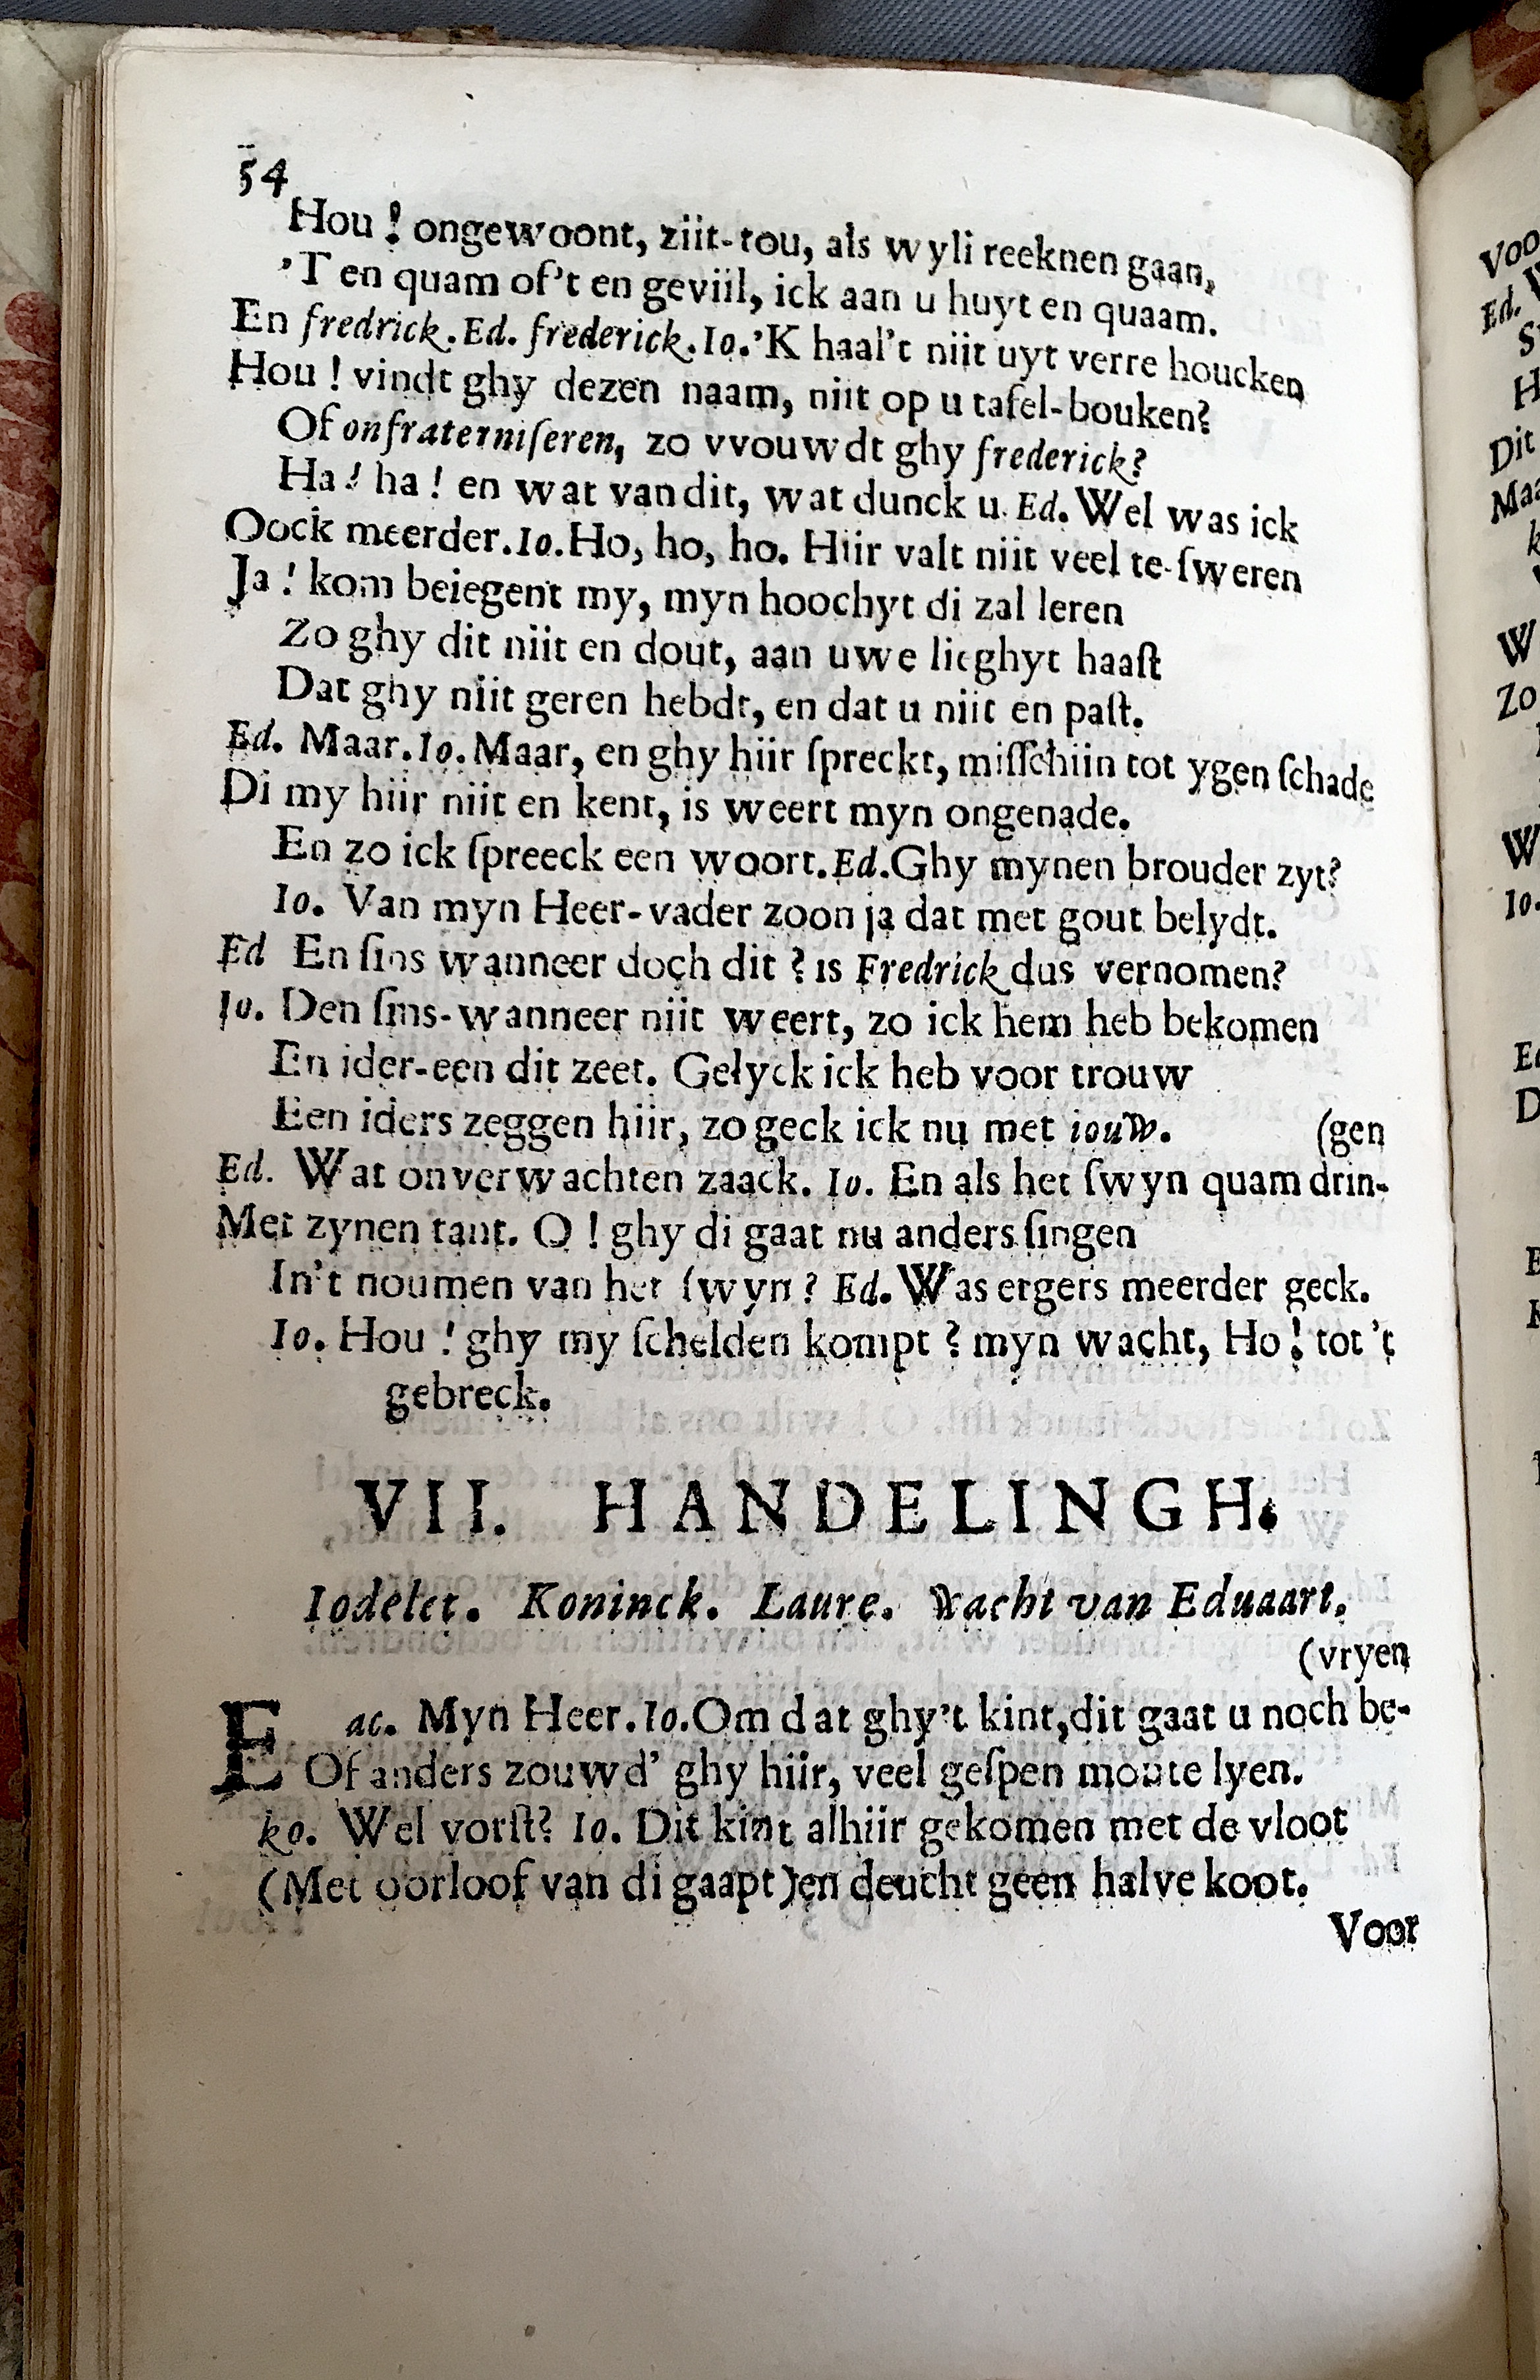 54
Hou ! ongewoont, ziit-tou, als wyli reeknen gaan,
'T en quam of't en geviil, ick aan u huyt en quaam.
En fredrick. Ed. frederick. Io. 'K haal't niit uyt verre houcken
Hou ! vindt ghy dezen naam, niit op u tafel-bouken?
Of onfraterniſeren, zo vvouwdt ghy frederick?
Ha ! ha ! en wat van dit, wat dunck u. Ed. Wel was ick
Oock meerder. Io. Ho, ho, ho. Hiir valt niit veel te-ſweren
Ja ! kom beiegent my, myn hoochyt di zal leren
Zo ghy dit niit en dout, aan uwe lieghyt haaſt
Dat ghy niit geren hebdt, en dat u niit en paſt.
Ed. Maar. Io. Maar, en ghy hiir ſpreckt, miſſchiin tot ygen ſchade
Di my hiir niit en kent, is weert myn ongenade.
En zo ick ſpreeck een woort. Ed. Ghy mynen brouder zyt?
Io. Van myn Heer-vader zoon ja dat met gout belydt.
Ed En ſins wanneer doch dit ? is Fredrick dus vernomen?
Io. Den ſins-wanneer niit weert, zo ick hem heb bekomen
En ider-een dit zeet. Gelyck ick heb voor trouw
Een iders zeggen hiir, zo geck ick nu met iouw.
(gen
Ed. Wat onverwachten zaack. Io. En als het ſwyn quam drin-
Met zynen tant. O ! ghy di gaat nu anders ſingen
In't noumen van het ſwyn ? Ed. Was ergers meerder geck.
Io. Hou ! ghy my ſchelden kompt ? myn wacht, Ho ! tot 't
gebreck.
VII. HANDELINGH.
Iodelet. Koninck. Laure. Wacht van Eduaart.
(vryen
Eac. Myn Heer. Io. Om dat ghy't kint, dit gaat u noch be-
Of anders zouwd' ghy hiir, veel geſpen moute lyen.
ko. Wel vorſt? Io. Dit kint alhiir gekomen met de vloot
(Met oorloof van di gaapt) en deucht geen halve koot.
Voor